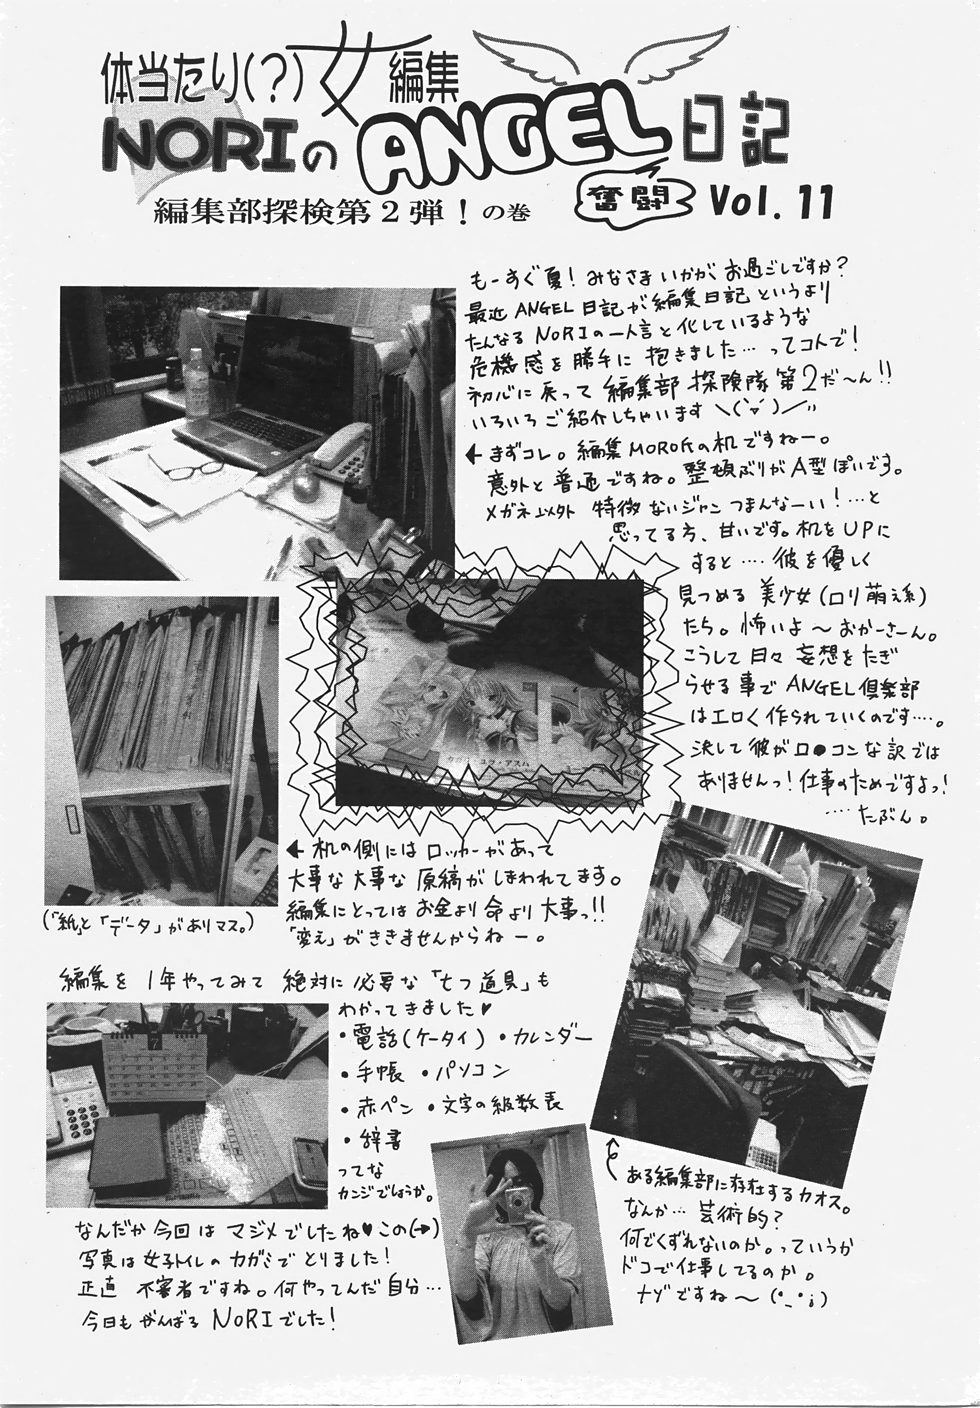 体当たり(?)女編集
NORIのANGEL日記
奮闘
Vol. 11
編集部探検第2弾!の巻
もーすぐ夏! みなさまいかがお過ごしですか?
最近 ANGEL日記が編集日記というより
たんなるNORIの一人言と化しているような
危機感を勝手に抱きました…ってコトで!
初心に戻って編集部探険隊第2だ〜ん!!
いろいろご紹介しちゃいます
← まずコレ。編集MORO氏の机ですねー。
意外と普通ですね。整頓ぶりがA型ぽいです。
メガネ以外 特徴ないジャン つまんなーい!…と
思ってる方、甘いです。机をUPに
すると…. 彼を優しく
見つめる美少女(ロリ萌え系)
たち。怖いよ〜おかーさーん。
こうして日々妄想をたぎ
らせる事でANGEL倶楽部
はエロく作られていくのです….。
決して彼がロ●コンな訳では
ありませんっ!仕事のためですよっ!
….たぶん。
ユラ・アスム
← 机の側にはロッカーがあって
大事な大事な原稿がしまわれてます。
編集にとってはお金より命より大事っ!!
「変え」がききませんからねー。
(「紙」と「データ」がありマス。)
編集を1年やってみて 絶対に必要な「七つ道具」も
わかってきました♥
・電話(ケータイ) ・カレンダー
・手帳 ・パソコン
・赤ペン ・文字の級数表
・辞書
ってな
カンジでしょうか。
7
ある編集部に存在するカオス。
なんか… 芸術的?
何でくずれないのか。っていうか
ドコで仕事してるのか。
ナゾですね〜(°_°;)
なんだか今回はマジメでしたね♥この(→)
写真は女子トイレのカガミでとりました!
正直 不審者ですね。何やってんだ自分…
今日もがんばるNORIでした!